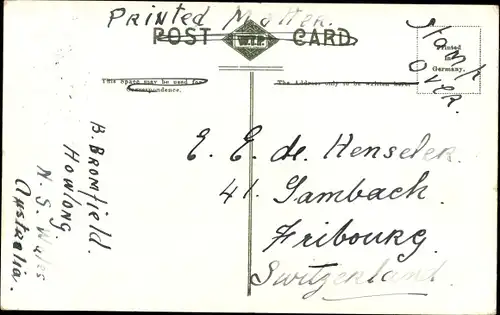 Printed Matter.
POST CARD
W.T.P.
This space may be used for
correspondence.
The Address only to be written here.
Printed
in
Germany.
Stamp
over.
B. Bromfield.
Howlong.
N. S. Wales
Australia.
E. E. de. Henseler.
41. Gambach.
Fribourg.
Switzerland.